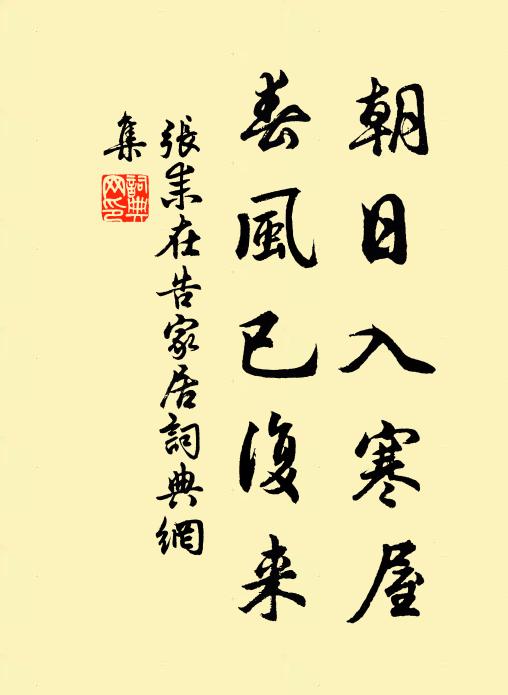 朝日入寒屋
春風已復来
張耒在告家居詞典網
集
詞典
网印